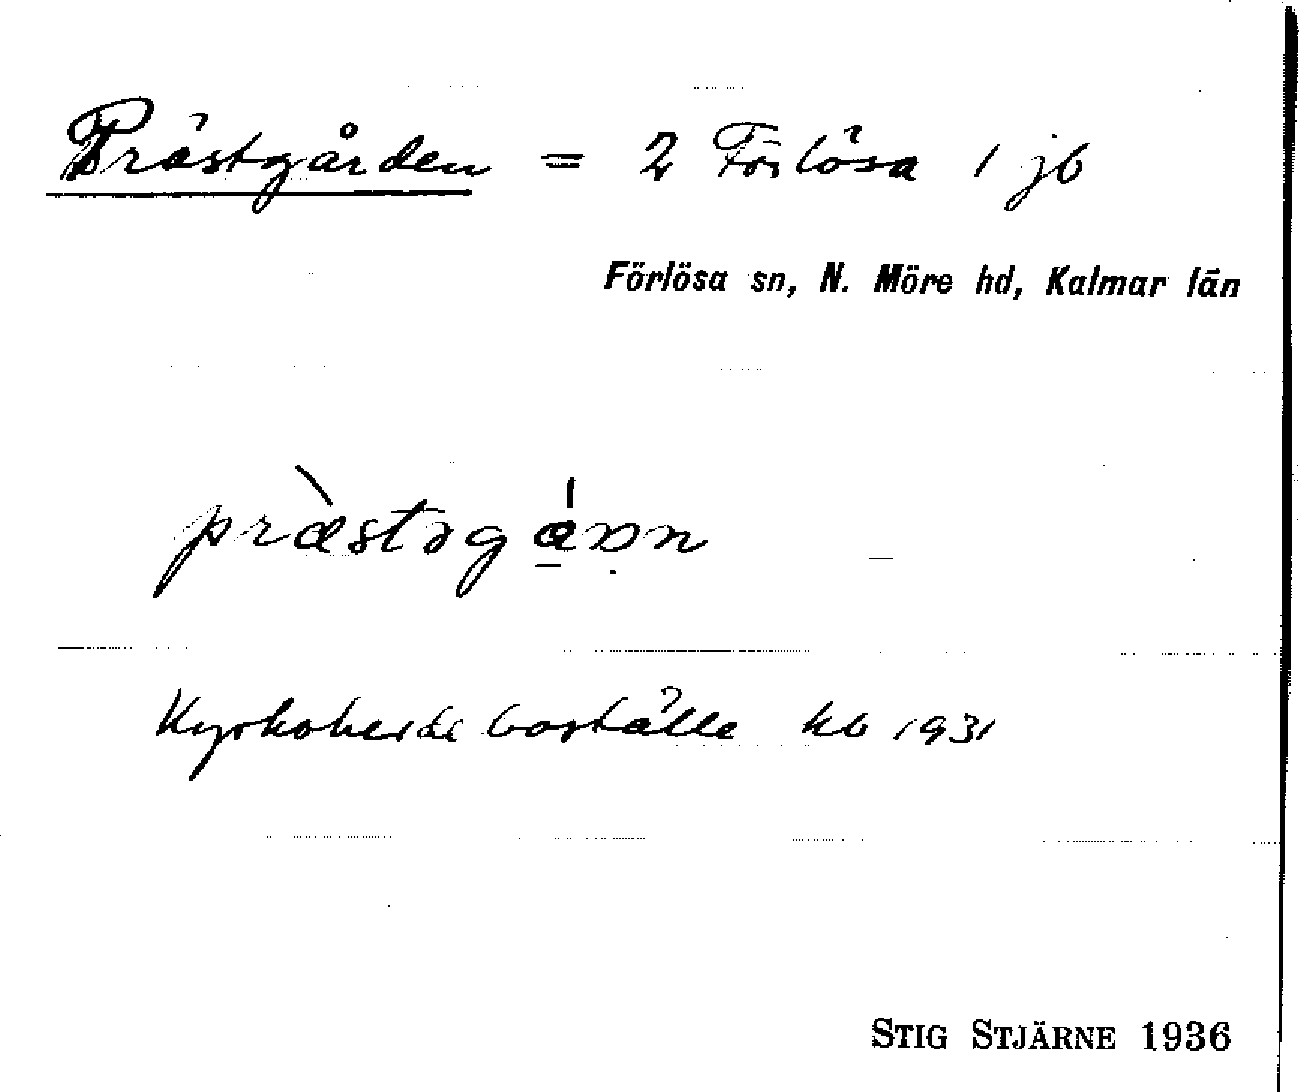 Prästgården = 2 Förlösa 1 jb
Förlösa sn, N. Möre hd, Kalmar län
Kyrkoherde boställe kb 1931
STIG STJÄRNE 1936